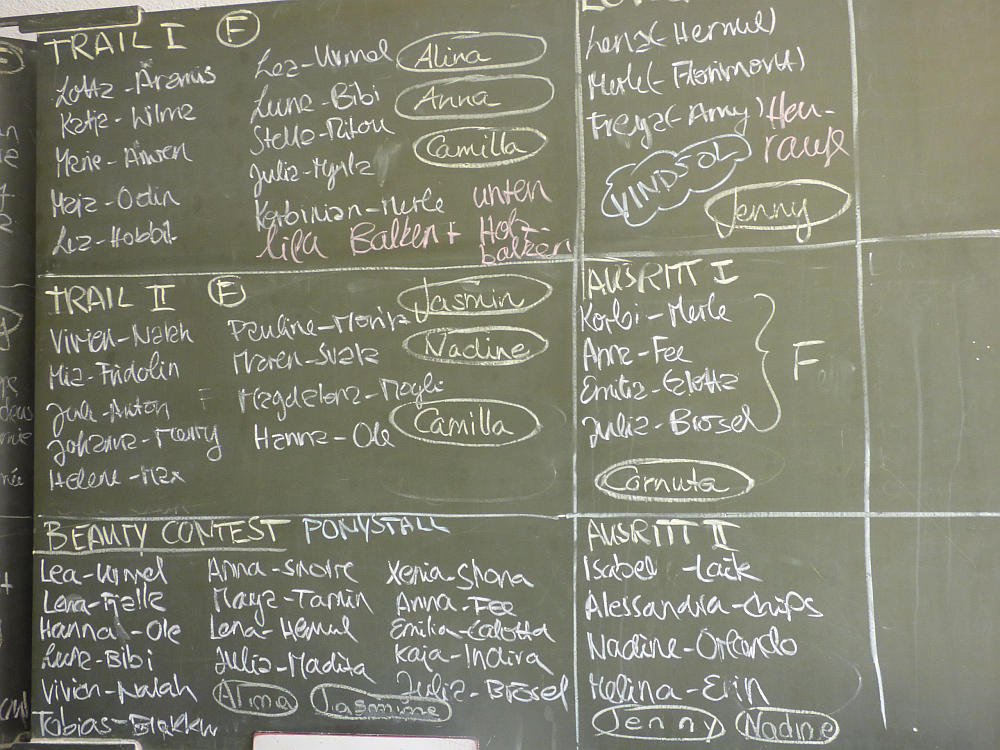 TRAIL I F
Lotta - Aramis
Katja - Wilma
Marie - Arwen
Maja - Odin
Lea - Hobbit
Lea - Urmel
Luna - Bibi
Stella - Ritou
Julia - Myrla
Korbinian - Merle
Alina
Anna
Camilla
unten
lila Balken + Holz-
balken
Lena (- Hermul)
Merle (- Florimont)
Freya (- Amy) Heu-
raufe
VINDSÖL
Jenny
TRAIL II F
Vivien - Nalah
Mia - Fridolin
Juli - Anton F
Johanna - Marry
Helene - Max
Pauline - Moritz
Maren - Svala
Magdalena - Mogli
Hanna - Ole
Jasmin
Nadine
Camilla
AUSRITT I
Korbi - Merle
Anna - Fee
Emilia - Calotta
Julia - Brösel
F
Carnuta
BEAUTY CONTEST PONYSTALL
Lea - Urmel
Lena - Fjalla
Hanna - Ole
Luna - Bibi
Vivien - Nalah
Tobias - Blakkur
Anna - Snotre
Maya - Tamin
Lena - Hermul
Julia - Madita
Alina
Jasmine
Xenia - Shona
Anna - Fee
Emilia - Calotta
Kaja - Indira
Julia - Brösel
AUSRITT II
Isabel - Laik
Alessandra - Chips
Nadine - Orlando
Melina - Erin
Jenny Nadine